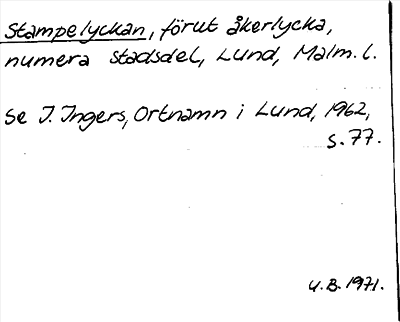 Stampelyckan, förut åkerlycka,
numera stadsdel, Lund, Malm. l.
Se J. Ingers, Ortnamn i Lund, 1962,
s. 77.
U.B. 1971.